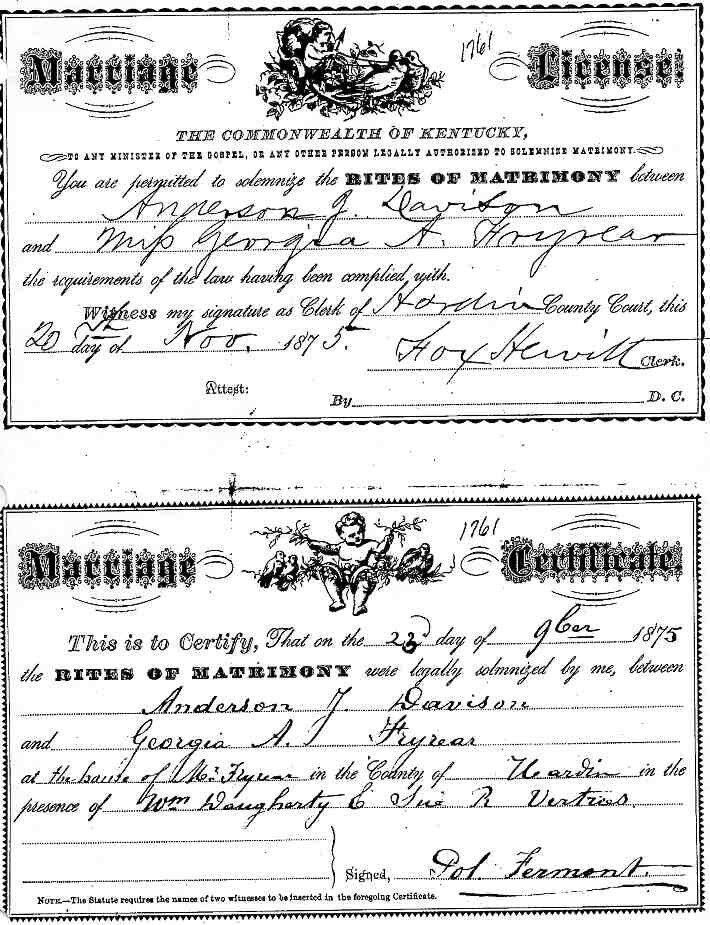 Marriage License. 1761
THE COMMONWEALTH OF KENTUCKY,
TO ANY MINISTER OF THE GOSPEL, OR ANY OTHER PERSON LEGALLY AUTHORIZED TO SOLEMNIZE MATRIMONY.
You are permitted to solemnize the RITES OF MATRIMONY between
Anderson J. Davison
and Miss Georgia A. Fryrear
the requirements of the law having been complied with.
Witness my signature as Clerk of Hardin County Court, this
20th day of Nov. 1875. Fox Hewitt Clerk.
Attest: By D. C.
Marriage Certificate. 1761
This is to Certify, That on the 23d day of 9ber 1875
the RITES OF MATRIMONY were legally solmnized by me, between
Anderson J. Davison
and Georgia A. Fryrear
at the house of Mr Fryrear in the County of Heardin in the
presence of Wm Daugherty & Sue R Vertrees
Signed, Pol. Fermont.
NOTE.—The Statute requires the names of two witnesses to be inserted in the foregoing Certificate.